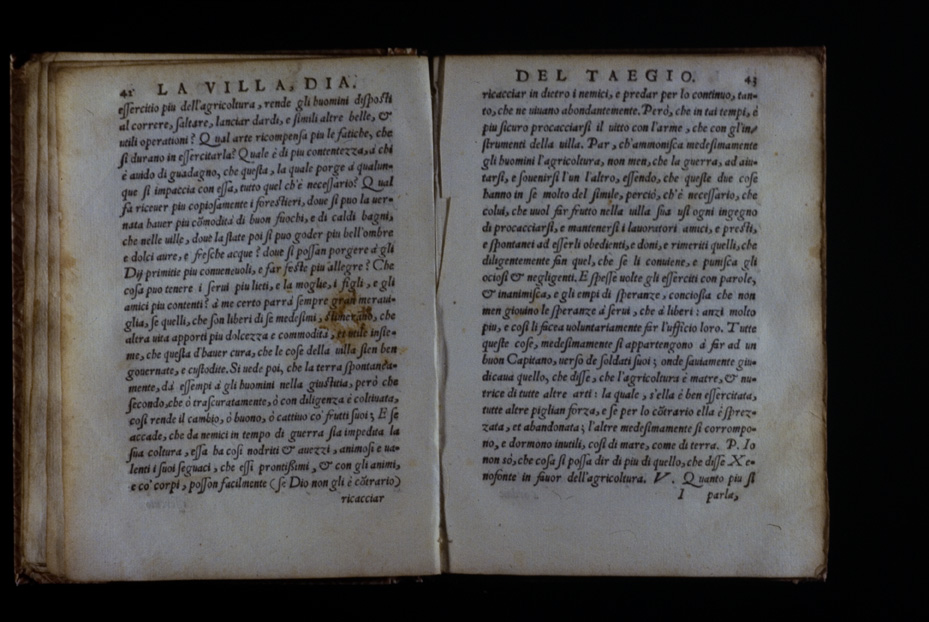 42 LA VILLA, DIA.
eſſercitio piu dell'agricoltura, rende gli huomini diſpoſti
al correre, ſaltare, lanciar dardi, e ſimili altre belle, &
utili operationi? Qual arte ricompenſa piu le fatiche, che
ſi durano in eſſercitarla? Quale è di piu contentezza, à chi
è auido di guadagno, che queſta, la quale porge à qualun-
que ſi impaccia con eſſa, tutto quel ch'è neceſſario? Qual
fà riceuer piu copioſamente i foreſtieri, doue ſi può la uer-
nata hauer piu cõmodità di buon fuochi, e di caldi bagni,
che nelle uille, doue la ſtate poi ſi puo goder piu bell'ombre
e dolci aure, e freſche acque? doue ſi poſſan porgere à gli
Dij primitie piu conueneuoli, e far feſte piu allegre? Che
coſa puo tenere i ſerui piu lieti, e la moglie, i figli, e gli
amici piu contenti? à me certo parrà ſempre gran maraui-
glia, ſe quelli, che ſon liberi di ſe medeſimi, che
altra uita apporti piu dolcezza e commodità, et utile inſie-
me, che queſta d'hauer cura, che le coſe della uilla ſien ben
gouernate, e cuſtodite. Si uede poi, che la terra ſpontanea-
mente, dà eſſempi à gli huomini nella giuſtitia, però che
ſecondo, che ò traſcuratamente, ò con diligenza è coltiuata,
coſi rende il cambio, ò buono, ò cattiuo co' frutti ſuoi; E ſe
accade, che da nemici in tempo di guerra ſia impedita la
ſua coltura, eſſa ha coſi nodriti & auezzi, animoſi e ua-
lenti i ſuoi ſeguaci, che eſſi prontißimi, & con gli animi,
e co' corpi, poſſon facilmente (ſe Dio non gli è cõtrario)
ricacciar
DEL TAEGIO. 43
ricacciar in dietro i nemici, e predar per lo continuo, tan-
to, che ne uiuano abondantemente. Però, che in tai tempi, è
piu ſicuro procacciarſi il uitto con l'arme, che con gl'in-
ſtrumenti della uilla. Par, ch'ammoniſca medeſimamente
gli huomini l'agricoltura, non men, che la guerra, ad aiu-
tarſi, e ſouenirſi l'un l'altro, eſſendo, che queſte due coſe
hanno in ſe molto del ſimile, perciò, ch'è neceſſario, che
colui, che uuol far frutto nella uilla ſua uſi ogni ingegno
di procacciarſi, e mantenerſi i lauoratori amici, e preſti,
e ſpontanei ad eſſerli obedienti, e doni, e rimeriti quelli, che
diligentemente fan quel, che ſe li conuiene, e puniſca gli
ocioſi & negligenti. E ſpeſſe uolte gli eſſerciti con parole,
& inanimiſca, e gli empi di ſperanze, concioſia che non
men giouino le ſperanze à ſerui, che à liberi: anzi molto
piu, e coſi li facea uoluntariamente far l'ufficio loro. Tutte
queſte coſe, medeſimamente ſi appartengono à far ad un
buon Capitano, uerſo de ſoldati ſuoi; onde ſauiamente giu-
dicaua quello, che diſſe, che l'agricoltura è matre, & nu-
trice di tutte altre arti: la quale, s'ella è ben eſſercitata,
tutte altre piglian forza, e ſe per lo cõtrario ella è ſprez-
zata, et abandonata; l'altre medeſimamente ſi corrompo-
no, e dormono inutili, coſi di mare, come di terra. P. Io
non sò, che coſa ſi poſſa dir di piu di quello, che diſſe Xe-
nofonte in fauor dell'agricoltura. V. Quanto piu ſi
I parla,